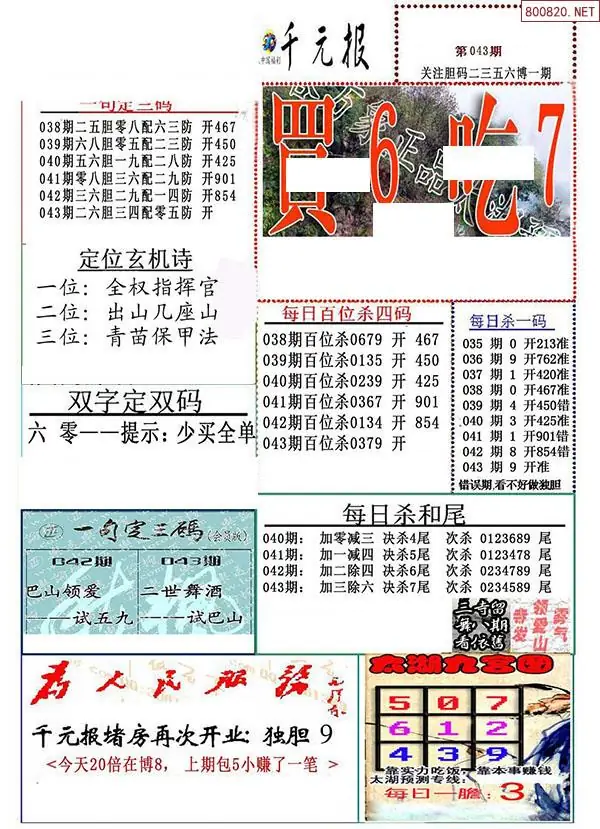 800820.NET
千元报
中国福利
第043期
关注胆码二三五六博一期
一句定三码
038期二五胆零八配六三防 开467
039期六八胆零五配二三防 开450
040期五六胆一九配二八防 开425
041期零八胆三六配二九防 开901
042期三六胆二九配一四防 开854
043期二六胆三四配零五防 开
買6吃7
定位玄机诗
一位: 全权指挥官
二位: 出山几座山
三位: 青苗保甲法
每日百位杀四码
038期百位杀0679 开 467
039期百位杀0135 开 450
040期百位杀0239 开 425
041期百位杀0367 开 901
042期百位杀0134 开 854
043期百位杀0379 开
每日杀一码
035 期 0 开213准
036 期 9 开762准
037 期 1 开420准
038 期 0 开467准
039 期 4 开450错
040 期 3 开425准
041 期 1 开901错
042 期 8 开854错
043 期 9 开准
错误期,看不好做独胆
双字定双码
六 零——提示: 少买全单
每日杀和尾
040期: 加零减三 决杀4尾 次杀 0123689 尾
041期: 加一减四 决杀5尾 次杀 0123478 尾
042期: 加二除四 决杀6尾 次杀 0234789 尾
043期: 加三除六 决杀7尾 次杀 0234589 尾
一句定三碼(会员版)
042期 043期
巴山领爱 二世舞酒
——试五九 ——试巴山
看依舊
领爱山
雾气
为人民服务
千元报堵房再次开业: 独胆 9
<今天20倍在博8, 上期包5小赚了一笔 >
太湖九宫图
5 0 7
6 1 2
4 3 9
靠实力吃饭 靠本事赚钱
太湖预测专线:
每日一膽: 3